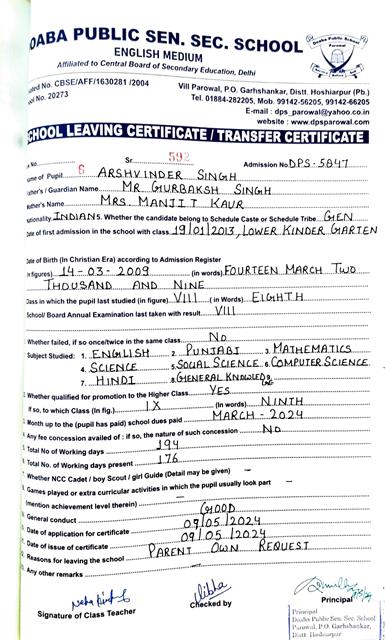 DOABA PUBLIC SEN. SEC. SCHOOL
ENGLISH MEDIUM
Affiliated to Central Board of Secondary Education, Delhi
Doaba Public School
Parowal
ated No. CBSE/AFF/1630281 /2004
ool No. 20273
Vill Parowal, P.O. Garhshankar, Distt. Hoshiarpur (Pb.)
Tel. 01884-282205, Mob. 99142-56205, 99142-66205
E-mail : dps_parowal@yahoo.co.in
website : www.dpsparowal.com
SCHOOL LEAVING CERTIFICATE / TRANSFER CERTIFICATE
No. 6 Sr. 592 Admission No. DPS-5847
ame of Pupil ARSHVINDER SINGH
ather's / Guardian Name MR. GURBAKSH SINGH
other's Name MRS. MANJIT KAUR
ationality INDIANS. Whether the candidate belong to Schedule Caste or Schedule Tribe GEN
Date of first admission in the school with class 19/01/2013, LOWER KINDER GARTEN
Date of Birth (In Christian Era) according to Admission Register
(in figures) 14-03-2009 (in words) FOURTEEN MARCH TWO
THOUSAND AND NINE
Class in which the pupil last studied (in figure) VIII (in Words) EIGHTH
School/ Board Annual Examination last taken with result VIII
Whether failed, if so once/twice in the same class NO
Subject Studied: 1. ENGLISH 2. PUNJABI 3. MATHEMATICS
4. SCIENCE 5. SOCIAL SCIENCE 6. COMPUTER SCIENCE
7. HINDI 8. GENERAL KNOWLEDGE
Whether qualified for promotion to the Higher Class YES
If so, to which Class (In fig.) IX (In words) NINTH
Month up to the (pupil has paid) school dues paid MARCH-2024
Any fee concession availed of : if so, the nature of such concession NO
Total No of Working days 194
Total No. of Working days present 176
Whether NCC Cadet / boy Scout / girl Guide (Detail may be given) –
Games played or extra curricular activities in which the pupil usually took part –
(mention achievement level therein)
General conduct GOOD
Date of application for certificate 09/05/2024
Date of issue of certificate 09/05/2024
Reasons for leaving the school PARENT OWN REQUEST
Any other remarks –
Signature of Class Teacher
Checked by
Principal
Principal
Doaba Public Sen. Sec. School
Parowal, P.O. Garhshankar,
Distt. Hoshiarpur